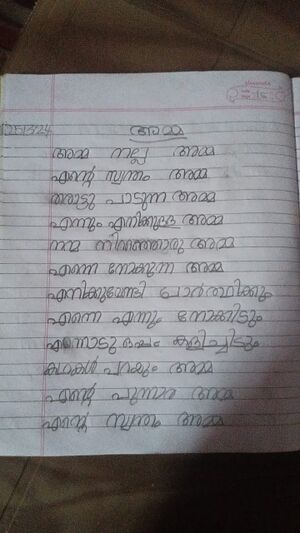 25/3/24
അമ്മ
അമ്മ നല്ല അമ്മ
എന്റെ സ്വന്തം അമ്മ
താരാട്ടു പാടുന്ന അമ്മ
എന്നും എനിക്കുള്ള അമ്മ
നന്മ നിറഞ്ഞൊരു അമ്മ
എന്നെ നോക്കുന്ന അമ്മ
എനിക്കുവേണ്ടി പ്രാർത്ഥിക്കും
എന്നെ എന്നും നോക്കിടും
എന്നോടു ഒപ്പം കളിച്ചിടും
കഥകൾ പറയും അമ്മ
എന്റെ പുന്നാര അമ്മ
എന്റെ സ്വന്തം അമ്മ